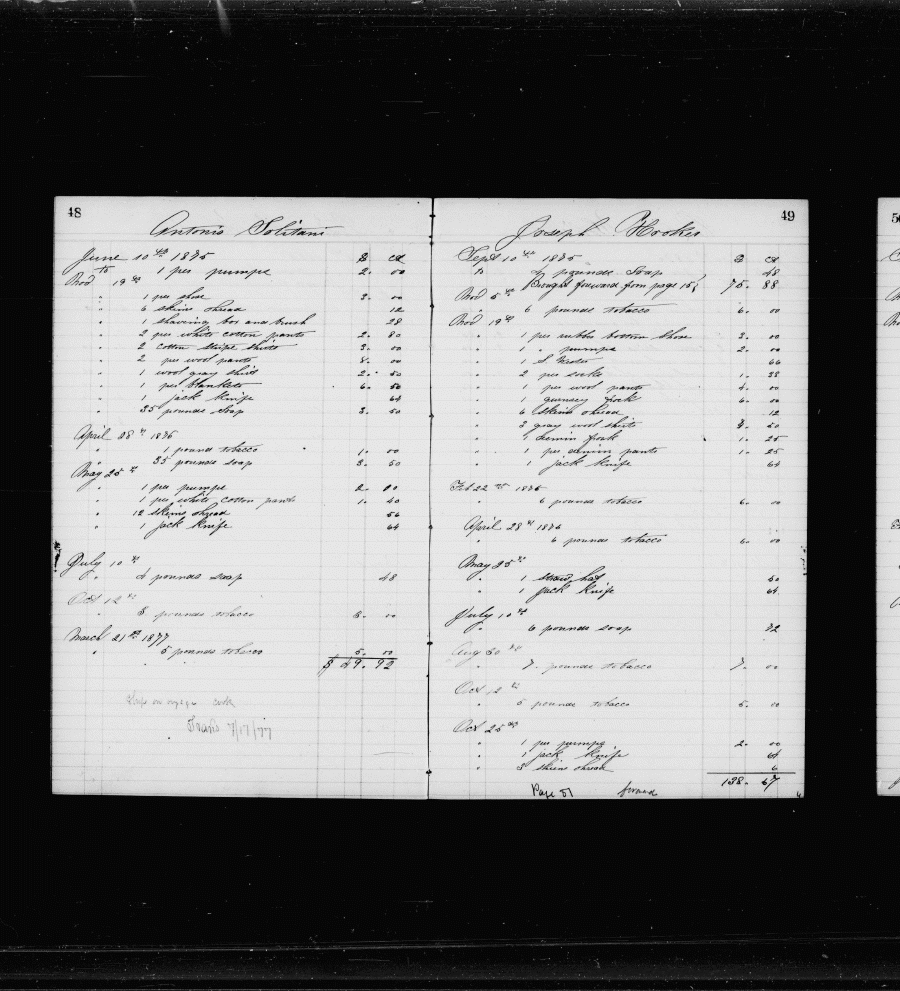 48
Antonio Solitani
June 10th 1875 $ ct
to 1 per pumps 2. 00
Nod 19th
" 1 per shoe 2. 00
" 6 skeins thread 12
" 1 shaving box and brush 28
" 2 per white cotton pants 2. 80
" 2 cotton stripe shirts 2. 00
" 2 per wool pants 8. 00
" 1 wool gray shirt 2. 50
" 1 per blankets 6. 50
" 1 jack knife 64
" 35 pounds soap 3. 50
April 28th 1876
" 1 pound tobacco 1. 00
" 35 pounds soap 3. 50
May 25th
" 1 per pumps 2. 00
" 1 per white cotton pants 1. 40
" 12 skeins thread 56
" 1 jack knife 64
July 10th
" 4 pounds soap 48
Oct 12th
" 8 pounds tobacco 8. 00
March 21st 1877
" 5 pounds tobacco 5. 00
$ 49. 92
7/17/77
49
Joseph Hooker
Sept 10th 1875 $ ct
to 4 pounds soap 48
Brought forward from page 15 75. 88
Nod 5th
" 6 pounds tobacco 6. 00
Nod 19th
" 1 per rubber bottom shoes 2. 00
" 1 " pumps 2. 00
" 1 66
" 2 per socks 1. 38
" 1 per wool pants 4. 00
" 1 gurnsey frock 6. 00
" 6 skeins thread 12
" 3 gray wool shirts 50
" 1 denim frock 1. 25
" 1 per denim pants 1. 25
" 1 jack knife 64
Feb 22nd 1876
" 6 pounds tobacco 6. 00
April 28th 1876
" 6 pounds tobacco 6. 00
May 25th
" 1 straw hat 50
" 1 jack knife 64
July 10th
" 6 pounds soap 72
Aug 30th
" 7. pounds tobacco 7. 00
Oct 12th
" 5 pounds tobacco 5. 00
Oct 25th
" 1 per pumps 2. 00
" 1 jack knife 64
" 3 skeins thread 6
138. 67
Page 51 forward